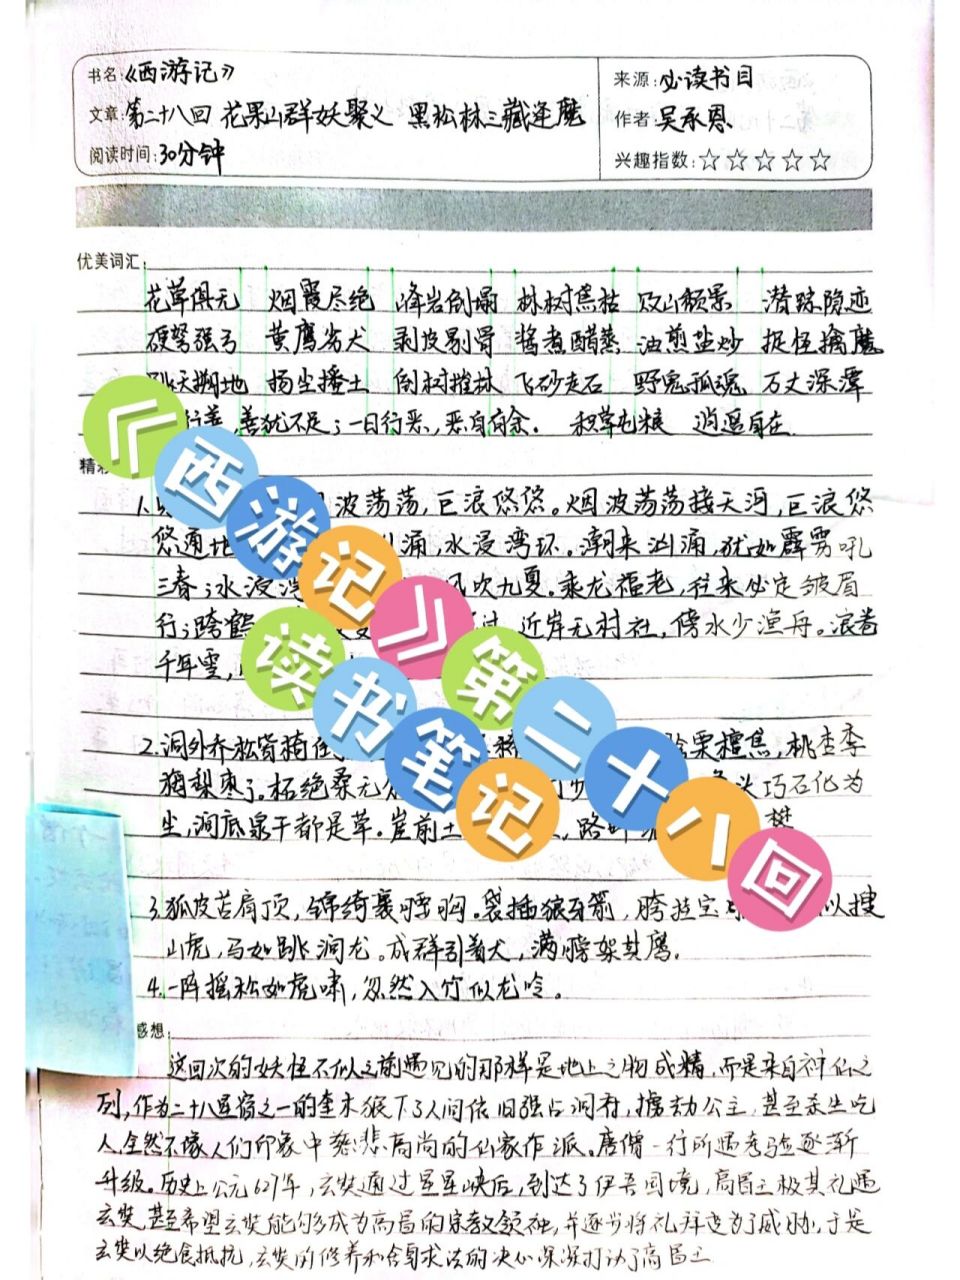 书名:《西游记》
来源:必读书目
文章:第二十八回 花果山群妖聚义 黑松林三藏逢魔
作者:吴承恩
阅读时间:30分钟
兴趣指数:☆☆☆☆☆
优美词汇:
花草俱无 烟霞尽绝 峰岩倒塌 林树焦枯 及山颓景 潜踪隐迹
硬弩强弓 黄鹰劣犬 剥皮剔骨 酱煮醋蒸 油煎盐炒 捉怪擒魔
天揭地 扬尘播土 倒树摧林 飞砂走石 野鬼孤魂 万丈深潭
行善,善犹不足;一日行恶,恶自有余。 积草屯粮 逍遥自在
精
1. 波荡荡,巨浪悠悠。烟波荡荡接天河,巨浪悠
悠通地 涌,水浸湾环。潮来汹涌,犹如霹雳吼
三春;水浸 风吹九夏。乘龙福老,往来必定皱眉
行;跨鹤 近岸无村社,傍水少渔舟。浪卷
千年雪,
2.洞外乔松皆倚 栗檀焦,桃杏李
梅梨枣了。柘绝桑无 头巧石化为
尘,涧底泉干都是草。崖前土 ,路 樊
3.狐皮苫肩顶,锦绮裹腰胸。袋插狼牙箭,胯挂宝 似搜
山虎,马如跳涧龙。成群引着犬,满膀架其鹰。
4.一阵摇松如虎啸,忽然入竹似龙吟。
感想:
这回次的妖怪不似之前遇见的那样是地上之物成精,而是来自神仙之
列,作为二十八星宿之一的奎木狼下了人间依旧强占洞府,掳劫公主,甚至杀生吃
人,全然不像人们印象中慈悲高尚的仙家作派。唐僧一行所遇考验逐渐
升级。历史上公元627年,玄奘通过星星峡后,到达了伊吾国境,高昌王极其礼遇
玄奘,甚至希望玄奘能够成为高昌的宗教领袖,并逐步将礼拜变为了威胁,于是
玄奘以绝食抵抗,玄奘的修养和舍身求法的决心深深打动了高昌王
《西游记》第二十八回
读书笔记